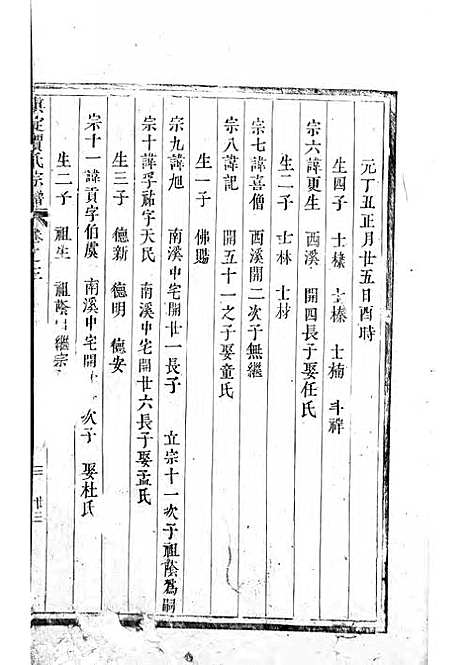 元丁丑正月廿五日酉時
生四子 士榛 士榛 士楠 斗祥
宗六諱更生 西溪 開四長子娶任氏
生二子 士林 士材
宗七諱喜僧 西溪開二次子無繼
宗八諱記 開五十一之子娶童氏
生一子 佛賜
宗九諱旭 南溪中宅開廿一長子 立宗十一次子祖蔭爲嗣
宗十諱孚祐字天民 南溪中宅開廿六長子娶孟氏
生三子 德新 德明 德安
宗十一諱貢字伯虞 南溪中宅開 次子 娶杜氏
生二子 祖生 祖蔭 繼宗
賈氏宗譜